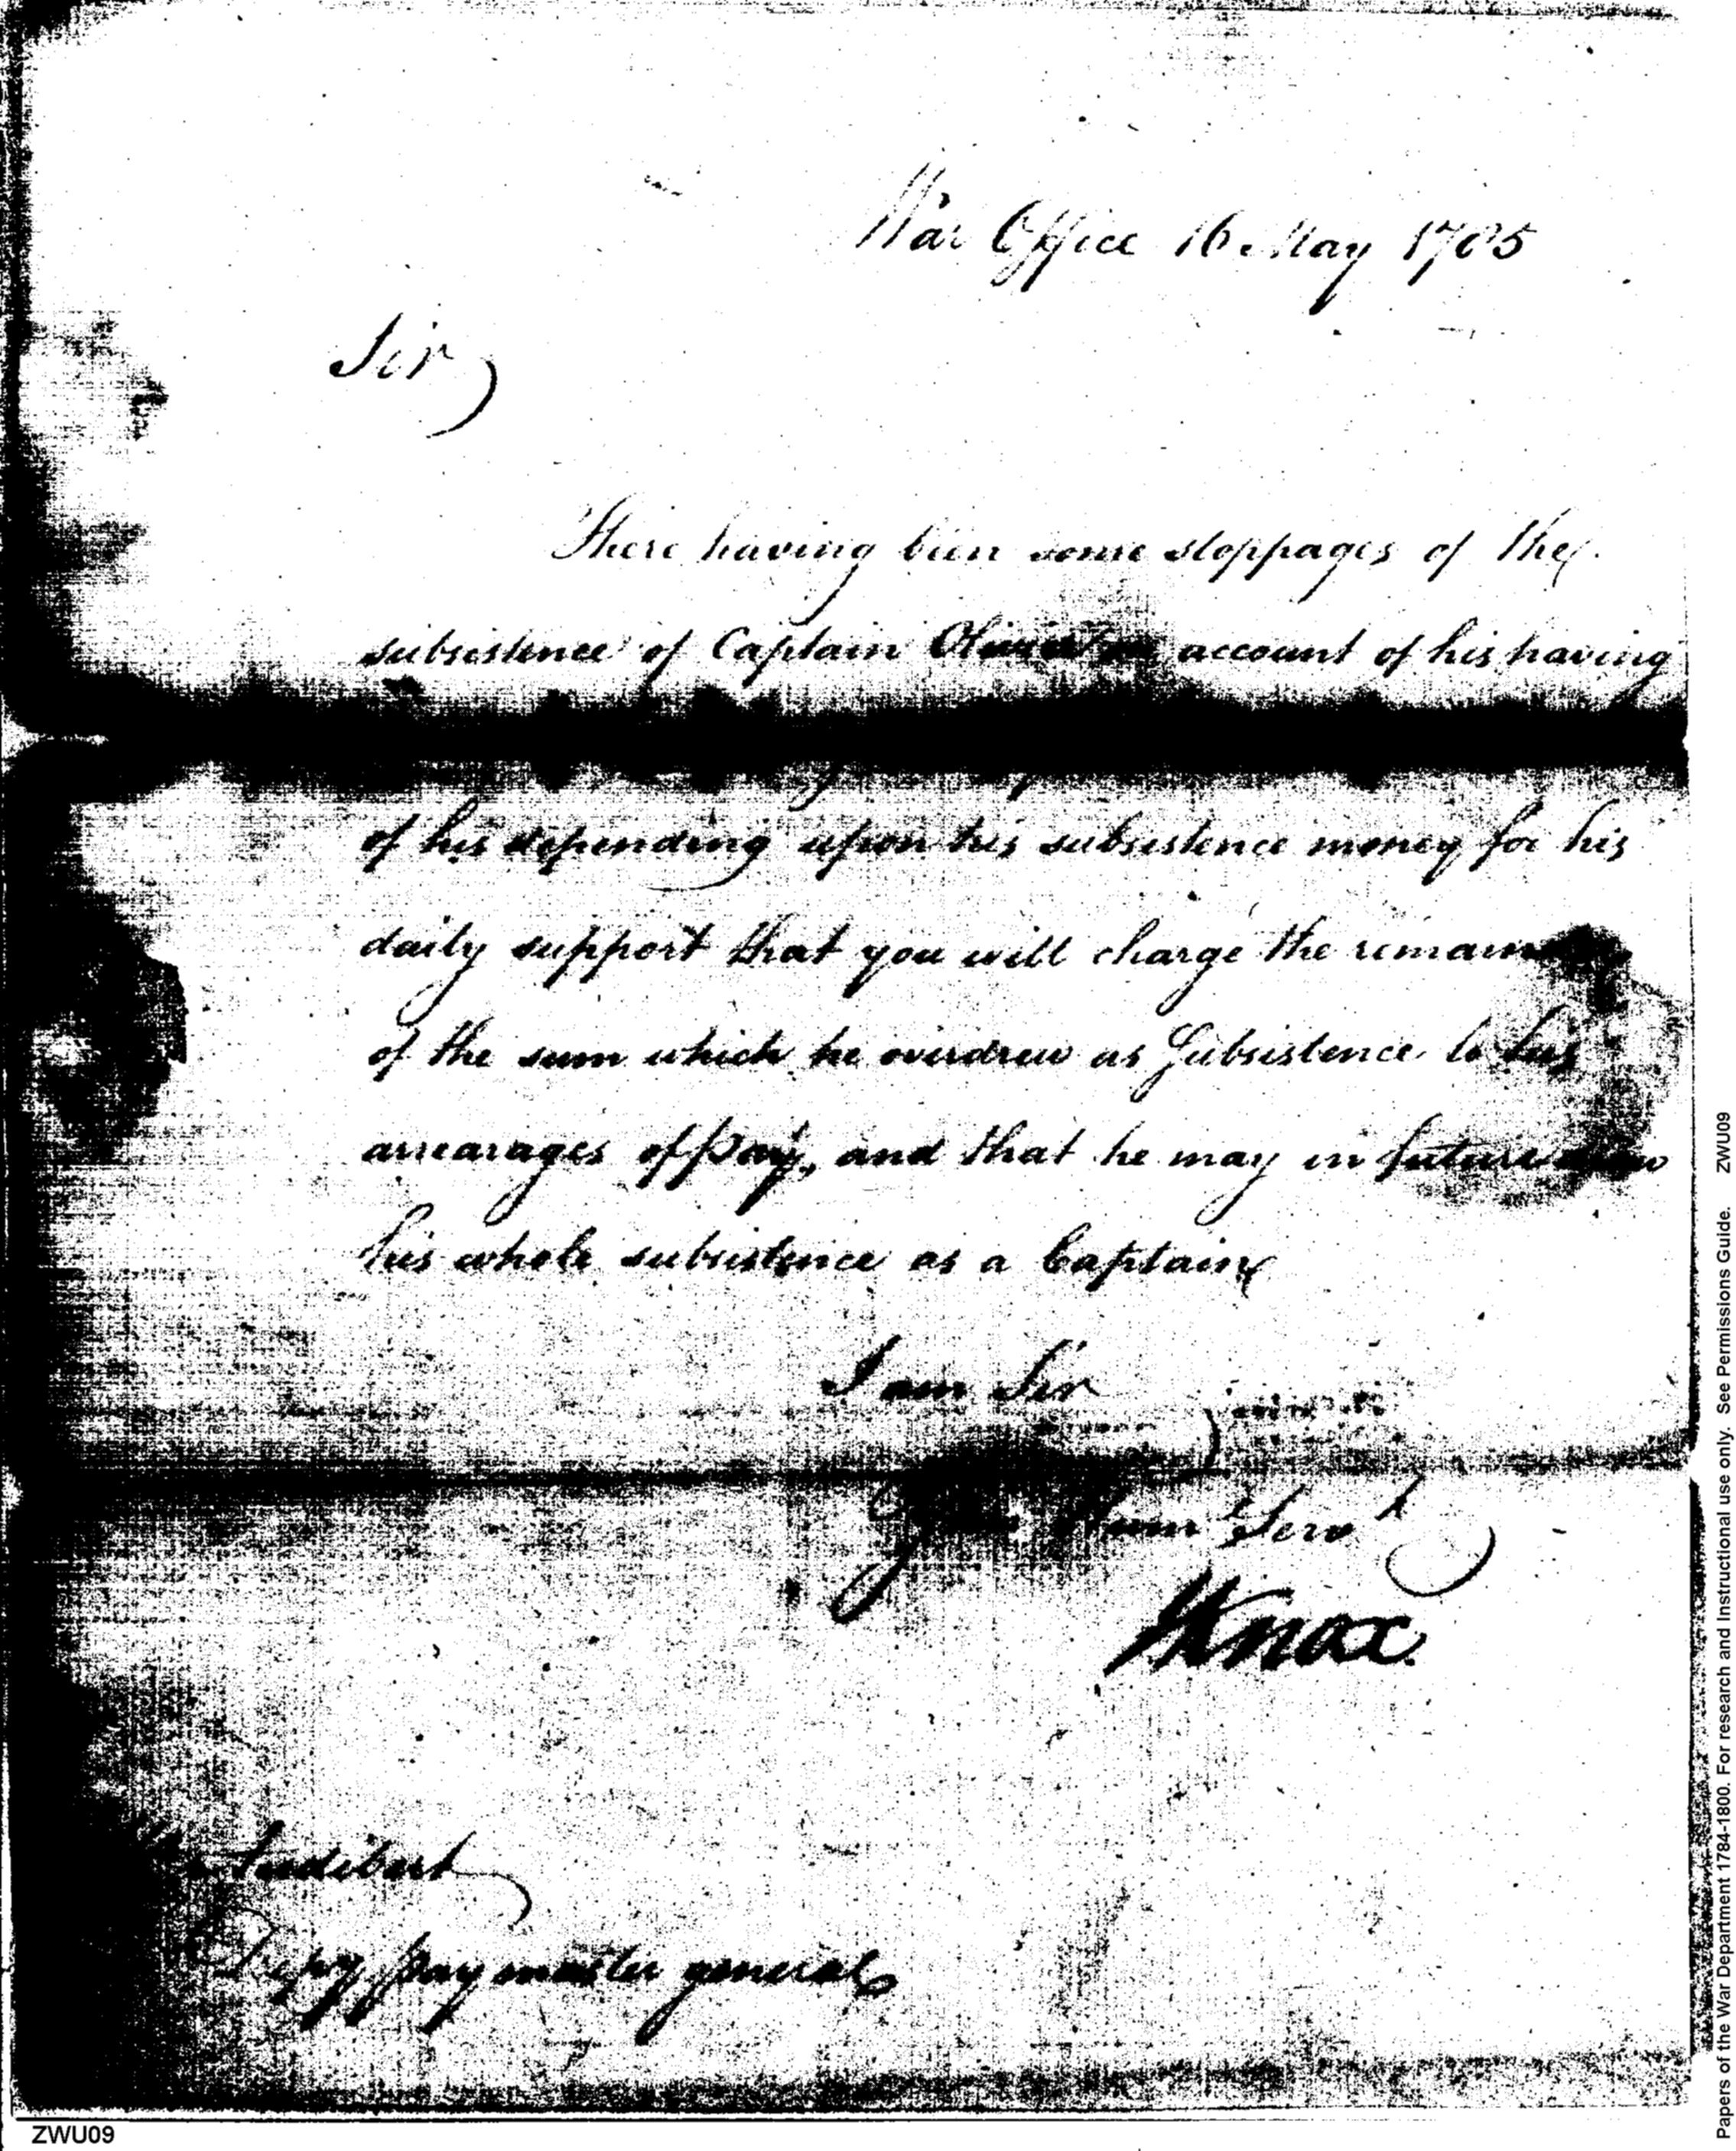 War Office 16 May 1785
Sir
There having been some stoppages of the
subsistence of Captain Olivier on account of his having
of his depending upon his subsistence money for his
daily support that you will charge the remain
of the sum which he overdrew as Subsistence to his
arrearages of pay, and that he may in future draw
his whole subsistence as a Captain
I am Sir
Your Hum Servt
HKnox
Audibert
Depy pay master general
ZWU09
Papers of the War Department 1784-1800. For research and Instructional use only. See Permissions Guide. ZWU09